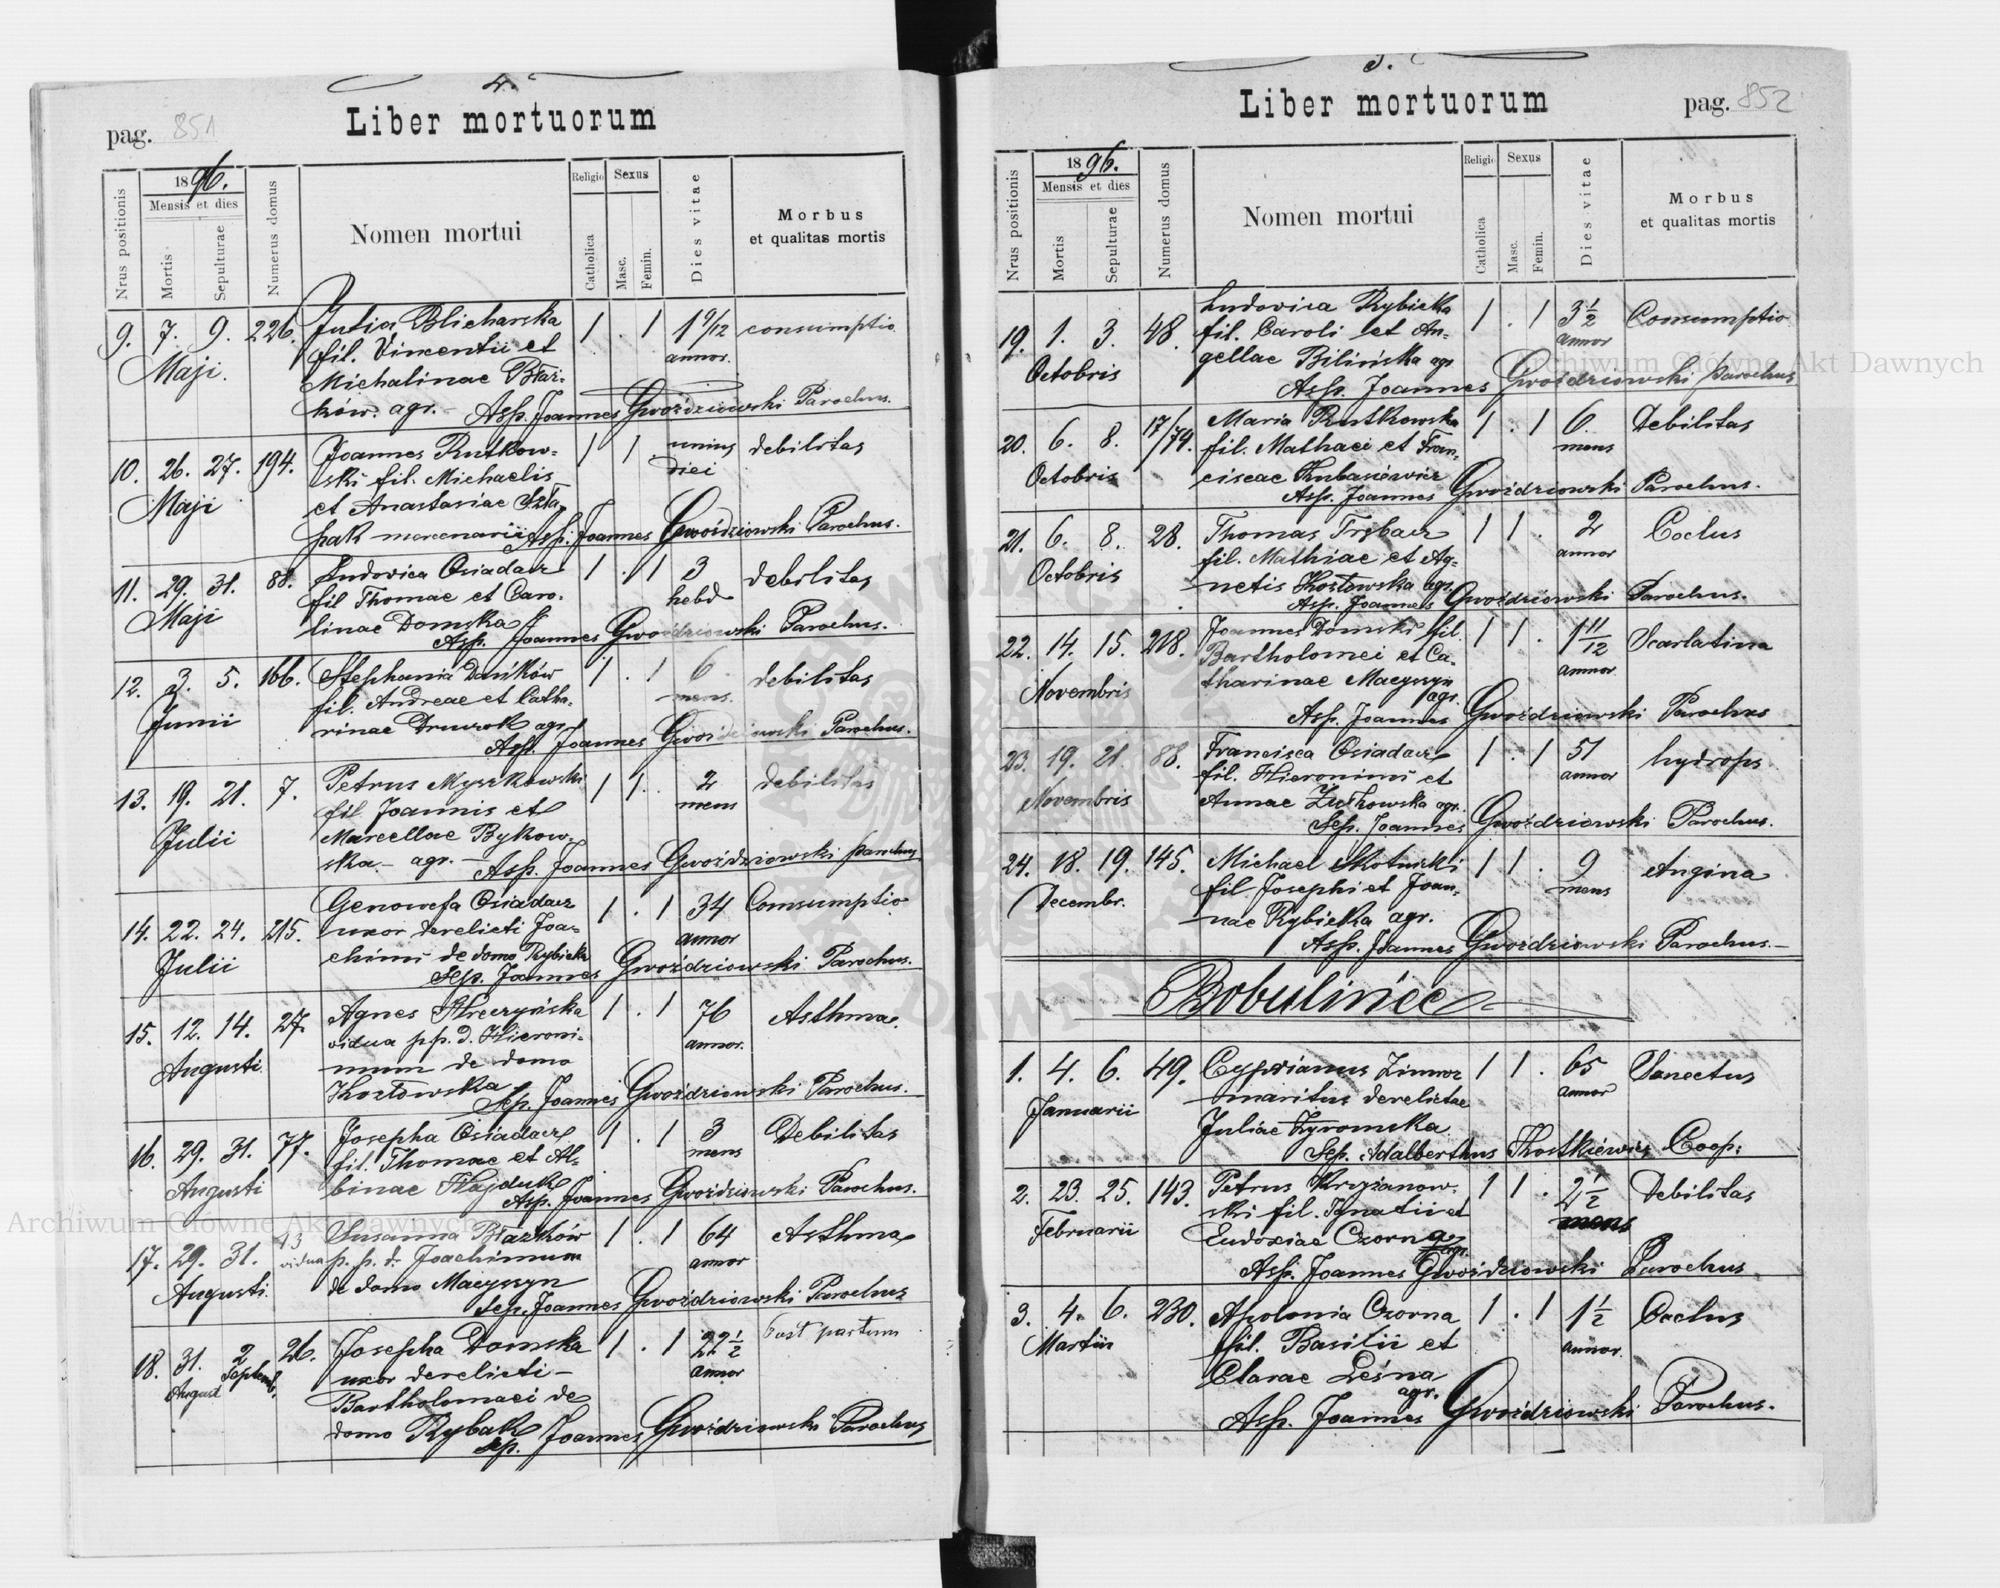 4.
pag. 851
Liber mortuorum
Nrus positionis
1896.
Mensis et dies
Mortis
Sepulturae
Numerus domus
Nomen mortui
Religio
Catholica
Sexus
Masc.
Femin.
Dies vitae
Morbus
et qualitas mortis
9. 7. 9. 226. Julia Blicharska 1 . 1 1 9/12 consumptio
Maji. fil. Vincentii et annor.
Michalinae Błaż-
ków. agr. - Asp. Joannes Gwoździowski Parochus.
10. 26. 27. 194. Joannes Rutkow- 1 1 unius debilitas
Maji ski fil. Michaelis diei
et Anastasiae Szła-
pak mercenarii Asp. Joannes Gwoździowski Parochus.
11. 29. 31. 88. Ludovica Osiadacz 1 . 1 3 debilitas
Maji fil Thomae et Caro- hebd
linae Domska
Asp. Joannes Gwoździowski Parochus.
12. 3. 5. 166. Stephania Dańków 1 . 1 6 debilitas
Junii fil. Andreae et Catha- mens.
rinae agr.
Asp. Joannes Gwoździowski Parochus.
13. 19. 21. 7. Petrus Myszkowski 1 1 . 2 debilitas
Julii fil Joannis et mens
Marcellae Bykow-
ska - agr. - Asp. Joannes Gwoździowski parochus
14. 22. 24. 215. Genowefa Osiadacz 1 . 1 34 Comsumptio
Julii uxor derelicti Joa- annor
chimi de domo Rybicka
Sep. Joannes Gwoździowski Parochus.
15. 12. 14. 27. Agnes Hreczyńska 1 . 1 76 Asthma.
Augusti. vidua p.p. d. Hieroni- annor.
mum de domo
Kozłowska Sep. Joannes Gwoździowski Parochus.
16. 29. 31. 77. Josepha Osiadacz 1 . 1 3 Debilitas
Augusti fil. Thomae et Al- mens
binae Hajduk
Asp. Joannes Gwoździowski Parochus.
17. 29. 31. 13 Susanna Błażków 1 . 1 64 Asthma
Augusti. vidua p. p. d. Joachimum annor
de domo Macyszyn
Sep. Joannes Gwoździowski Parochus
18. 31. 2 26. Josepha Domska 1 . 1 22 1/2 Post partum
August Septemb. uxor derelicti - annor
Bartholomaei de
domo Rybak
Sep. Joannes Gwoździowski Parochus
5.
Liber mortuorum
pag. 852
Nrus positionis
1896.
Mensis et dies
Mortis
Sepulturae
Numerus domus
Nomen mortui
Religio
Catholica
Sexus
Masc.
Femin.
Dies vitae
Morbus
et qualitas mortis
19. 1. 3. 48. Ludovica Rybicka 1 . 1 3 1/2 Consumptio
Octobris fil. Caroli et An- annor
gellae Bilińska agr
Asp. Joannes Gwoździowski parochus
20. 6. 8. 17/74. Maria Rutkowska 1 . 1 6 Debilitas
Octobris fil. Mathaei et Fran- mens
ciscae Kubasiewicz
Asp. Joannes Gwoździowski Parochus.
21. 6. 8. 28. Thomas Trębacz 1 1 . 2 Coclus
Octobris fil. Mathiae et Ag- annor
netis Kozłowska agr.
Asp. Joannes Gwoździowski Parochus.
22. 14. 15. 218. Joannes Domski fil. 1 1 . 1 11/12 Scarlatina
Novembris Bartholomei et Ca- annor.
tharinae Macyszyn
agr.
Asp. Joannes Gwoździowski Parochus
23. 19. 21. 88. Francisca Osiadacz 1 . 1 51 hydrops
Novembris fil. Hieronimi et annor
Annae Żułkowska agr.
Sep. Joannes Gwoździowski Parochus.
24. 18. 19. 145. Michael Słotwiski 1 1 . 9 Angina
Decembr. fil Josephi et Joan- mens
nae Rybicka agr.
Asp. Joannes Gwoździowski Parochus.-
Bobulińce
1. 4. 6. 49. Cyprianus Zimroz 1 1 . 65 Senectus
Januarii maritus derelictae annor
Juliae Żyromska
Sep. Adalberthus Kostkiewicz Coop.
2. 23. 25. 143. Petrus Krzyżanow- 1 1 . 2 1/2 Debilitas
Februarii ski fil. Ignatii et mens
Eudoxiae Czorna
agr.
Asp. Joannes Gwoździowski Parochus
3. 4. 6. 230. Apolonia Czorna 1 . 1 1 1/2 Coclus
Martii fil. Basilii et annor.
Clarae Leśna
agr.
Asp. Joannes Gwoździowski Parochus.
Archiwum Główne Akt Dawnych
Archiwum Główne Akt Dawnych